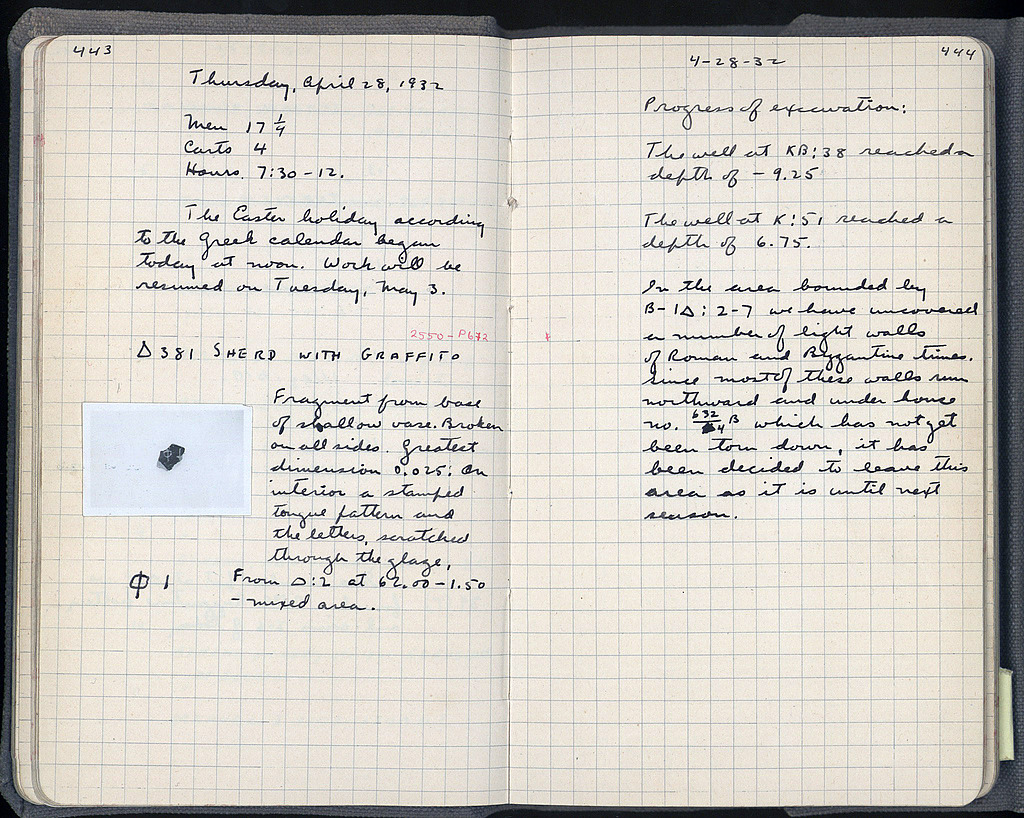 443
Thursday, April 28, 1932
Men 17 1/4
Carts 4
Hours. 7:30-12.
The Easter holiday according
to the Greek calendar began
today at noon. Work will be
resumed on Tuesday, May 3.
2550-P672
Δ 381 SHERD WITH GRAFFITO
Fragment from base
of shallow vase. Broken
on all sides. Greatest
dimension 0.025. On
interior a stamped
tongue pattern and
the letters, scratched
through the glaze,
Φ Ι
From Δ:2 at 62.00-1.50
- mixed area.
444
4-28-32
Progress of excavation:
The well at KB:38 reached a
depth of -9.25
The well at K:51 reached a
depth of 6.75.
In the area bounded by
B-ΙΔ: 2-7 we have uncovered
a number of light walls
of Roman and Byzantine times.
Since most of these walls run
northward and under house
no. 632/4 B which has not yet
been torn down, it has
been decided to leave this
area as it is until next
season.